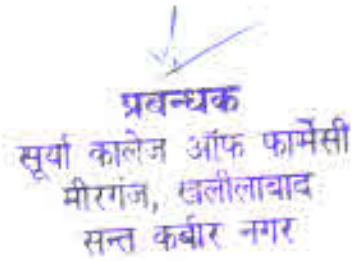 प्रबन्धक
सूर्या कालेज ऑफ फार्मेसी
मीरगंज, खलीलाबाद
सन्त कबीर नगर